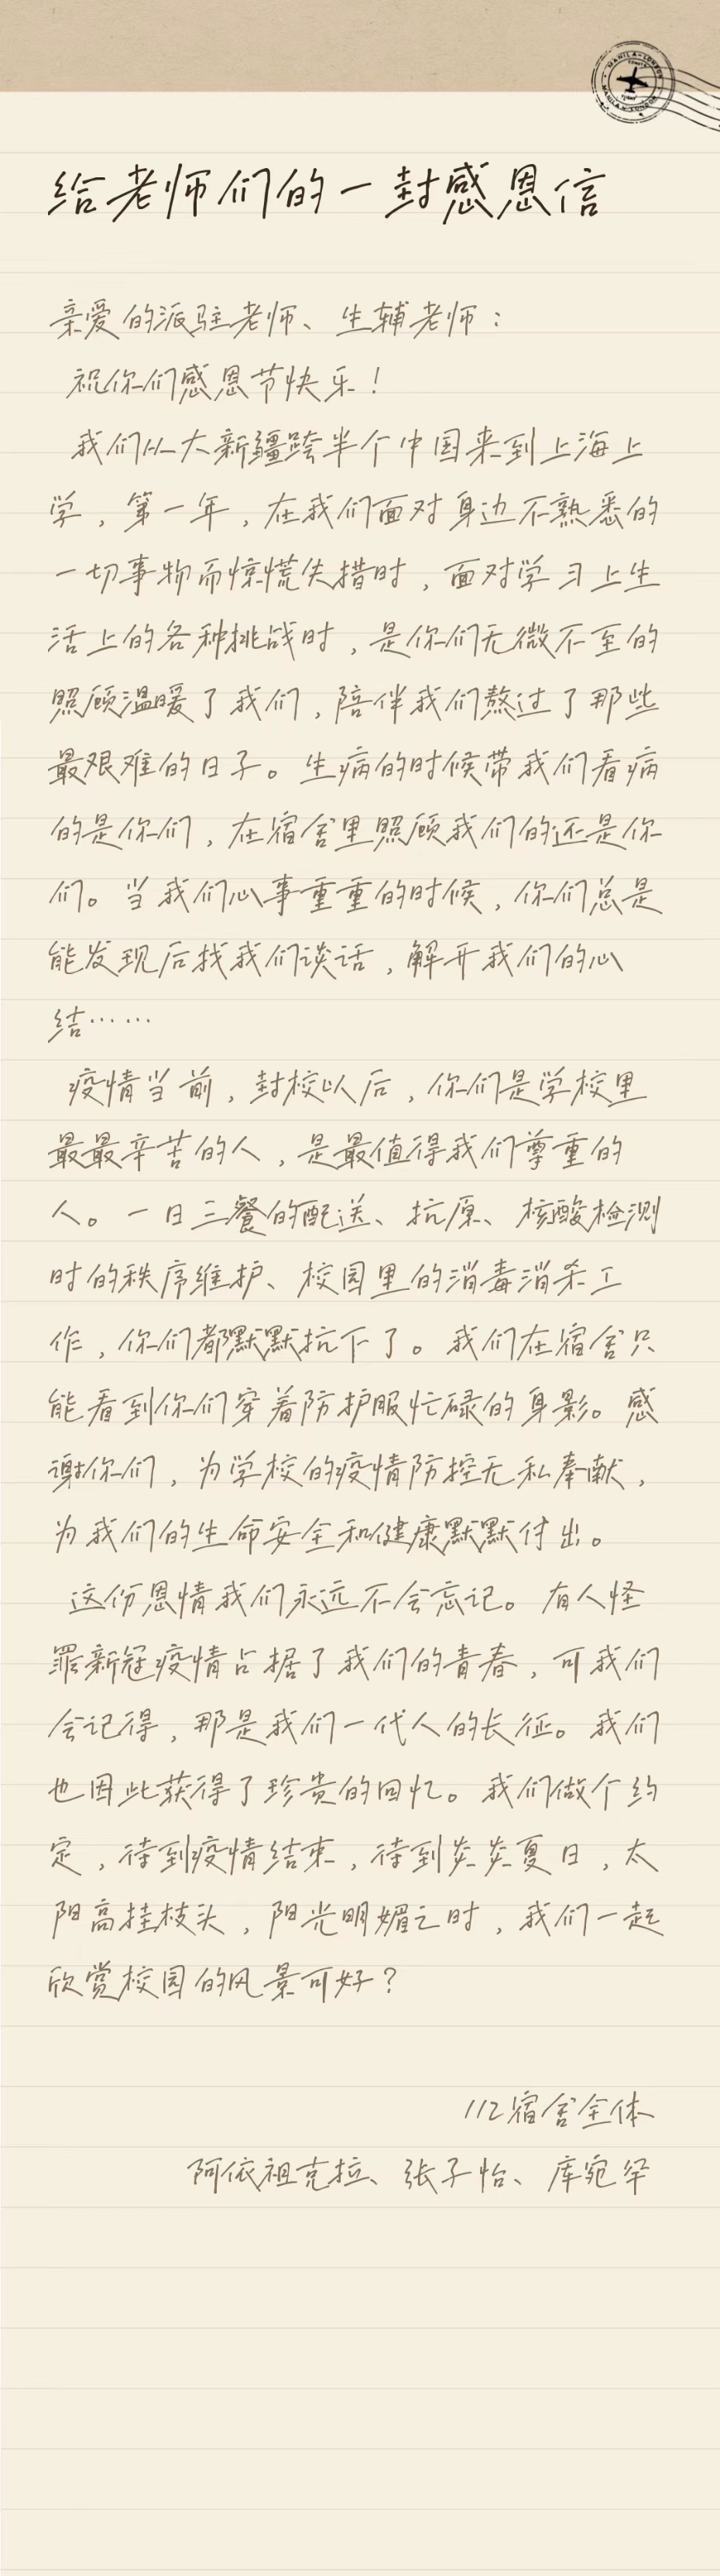 MANILA-LONDON
给老师们的一封感恩信
亲爱的派驻老师、生辅老师：
祝你们感恩节快乐！
我们从大新疆跨半个中国来到上海上
学，第一年，在我们面对身边不熟悉的
一切事物而惊慌失措时，面对学习上生
活上的各种挑战时，是你们无微不至的
照顾温暖了我们，陪伴我们熬过了那些
最艰难的日子。生病的时候带我们看病
的是你们，在宿舍里照顾我们的还是你
们。当我们心事重重的时候，你们总是
能发现后找我们谈话，解开我们的心
结……
疫情当前，封校以后，你们是学校里
最最辛苦的人，是最值得我们尊重的
人。一日三餐的配送、抗原、核酸检测
时的秩序维护、校园里的消毒消杀工
作，你们都默默抗下了。我们在宿舍只
能看到你们穿着防护服忙碌的身影。感
谢你们，为学校的疫情防控无私奉献，
为我们的生命安全和健康默默付出。
这份恩情我们永远不会忘记。有人怪
罪新冠疫情占据了我们的青春，可我们
会记得，那是我们一代人的长征。我们
也因此获得了珍贵的回忆。我们做个约
定，待到疫情结束，待到炎炎夏日，太
阳高挂枝头，阳光明媚之时，我们一起
欣赏校园的风景可好？
112宿舍全体
阿依祖克拉、张子怡、库宛罕